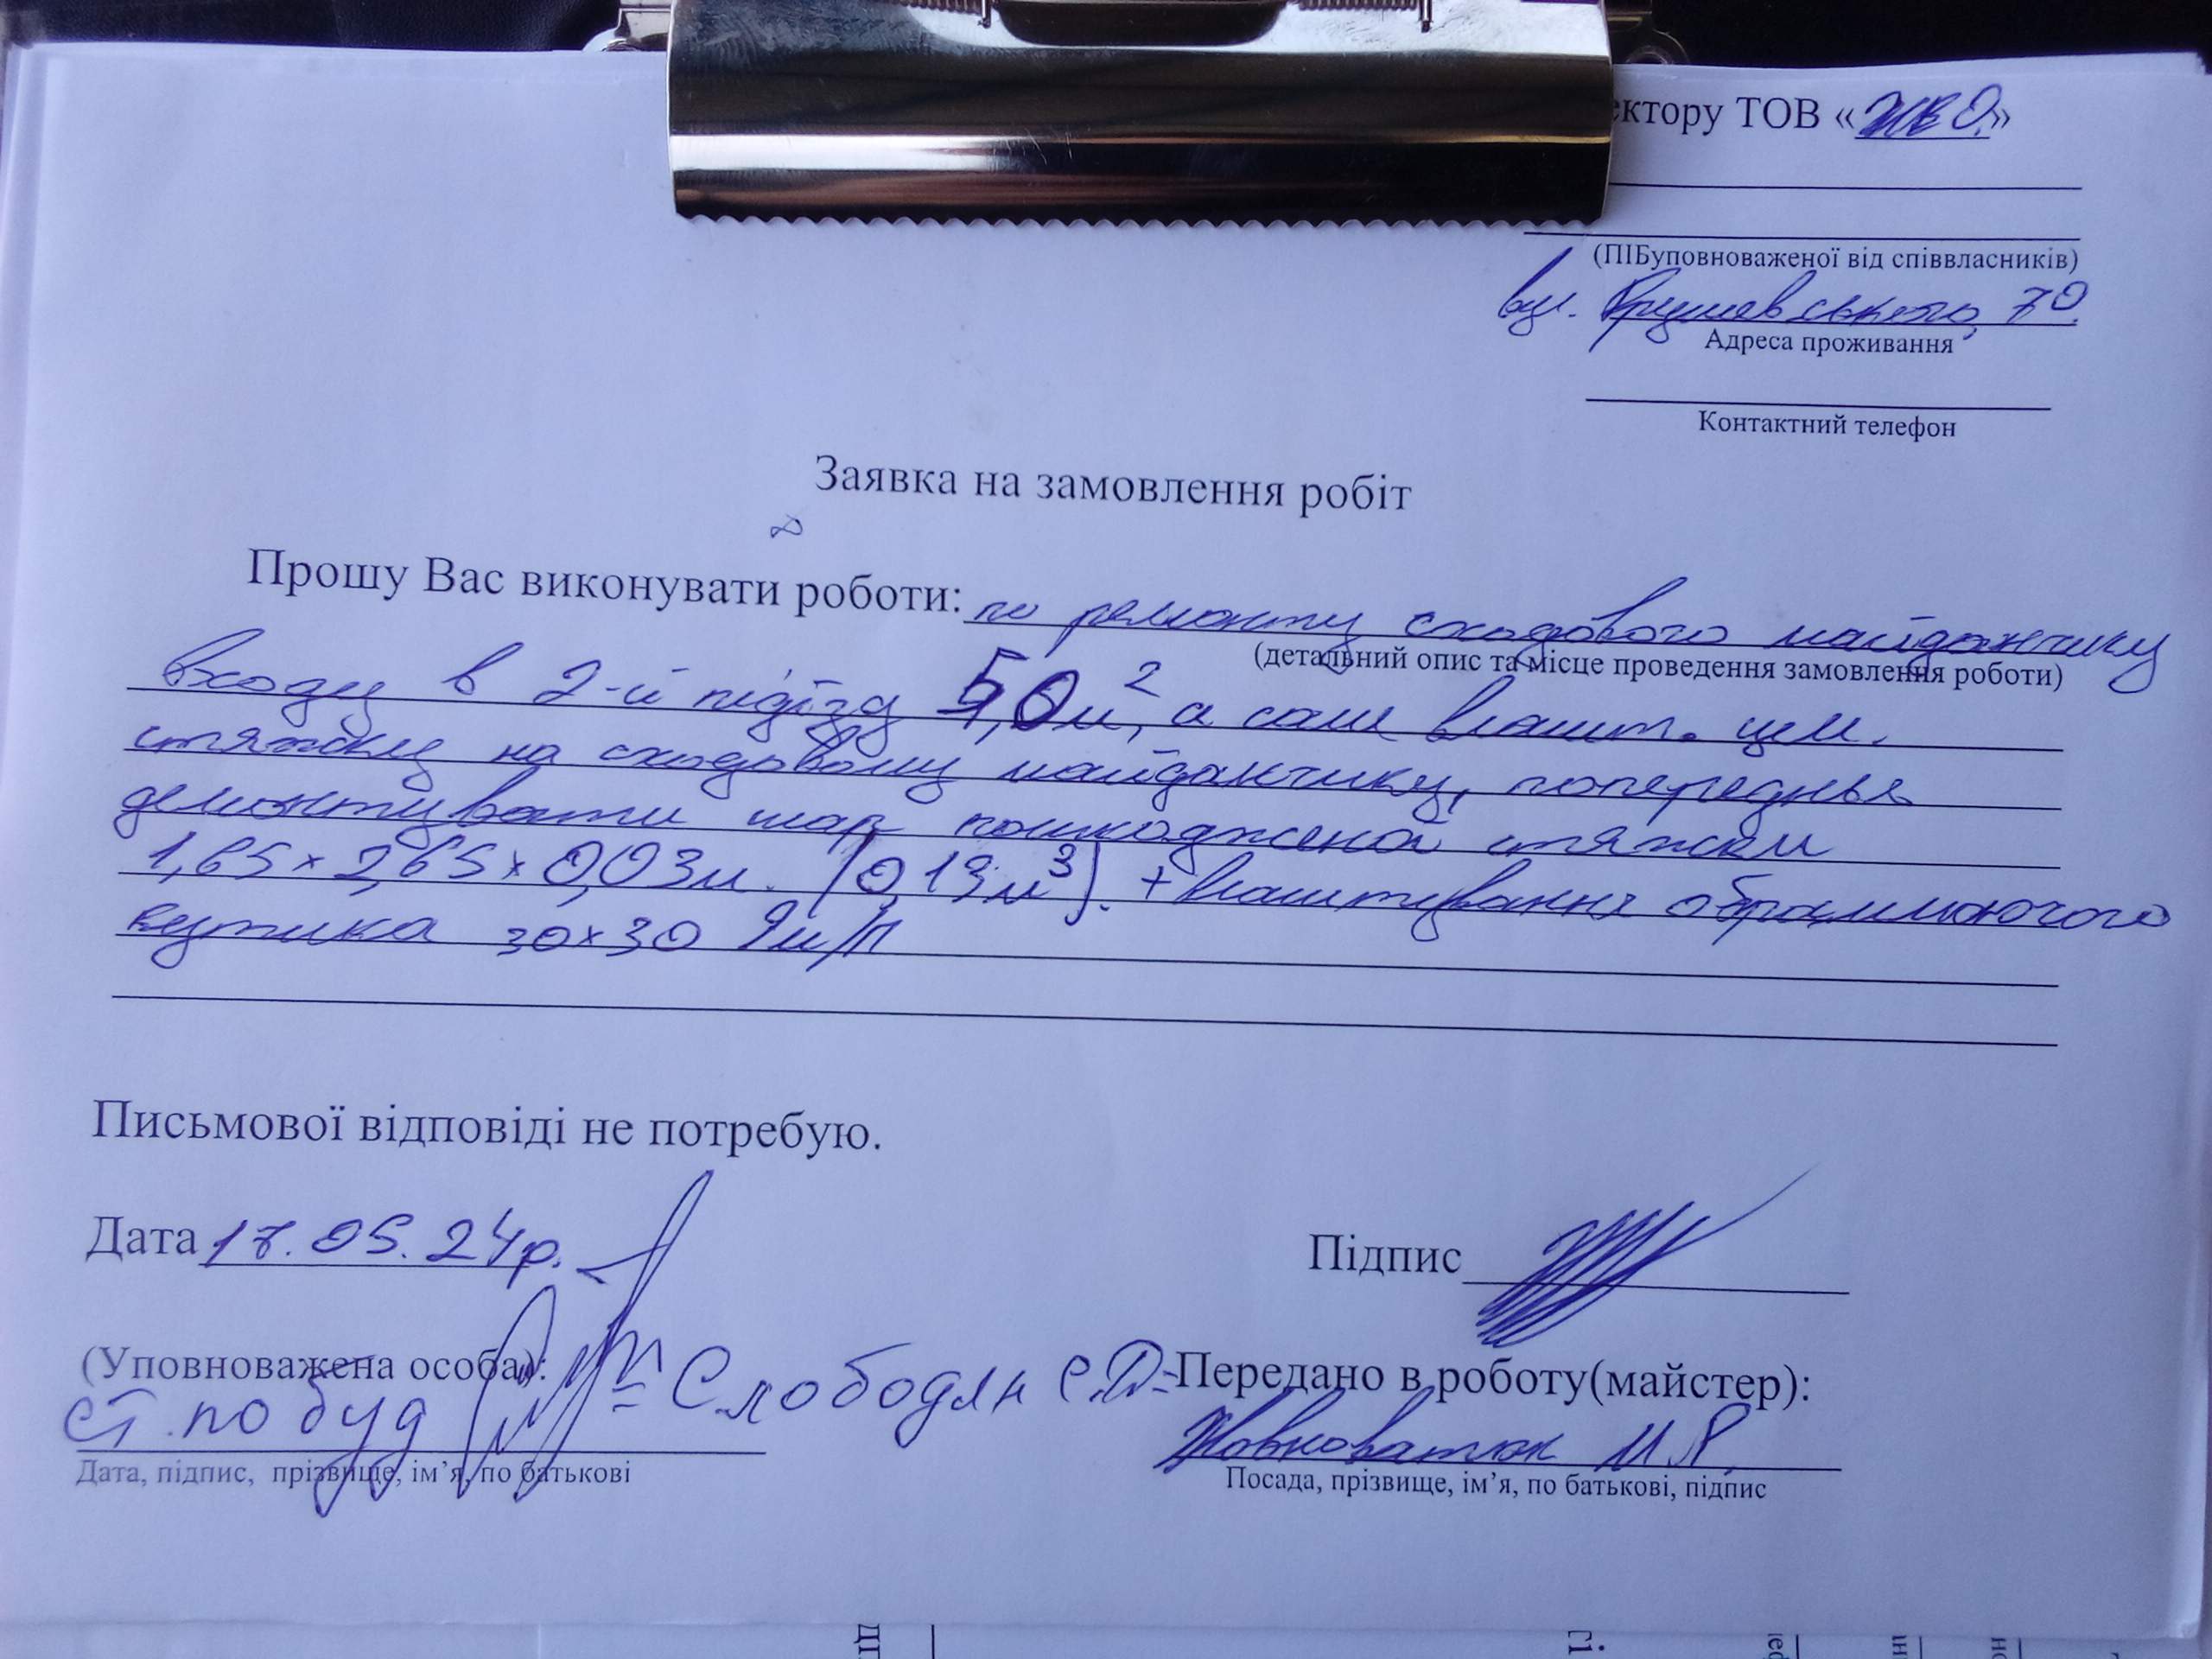 ектору ТОВ «ЖЕО»
(ПІБуповноваженої від співвласників)
вул. Грушевського, 70
Адреса проживання
Контактний телефон
Заявка на замовлення робіт
Прошу Вас виконувати роботи: по ремонту сходового майданчику
(детальний опис та місце проведення замовлення роботи)
входу в 2-й під'їзд 5,0м², а саме влашт. цем.
стяжку на сходовому майданчику, попередньо
демонтувати шар пошкодженої стяжки
1,65×2,65×0,03м. (0,13м³). + влаштування обрамлюючого
кутика 30×30 9м/п
Письмової відповіді не потребую.
Дата 17.05.24р.
Підпис
(Уповноважена особа):
ст. по буд Слободян С.Д.
Передано в роботу(майстер):
Дата, підпис, прізвище, ім’я, по батькові
Посада, прізвище, ім’я, по батькові, підпис